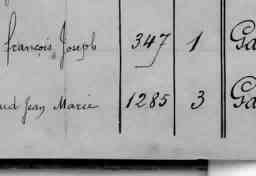 françois Joseph 347 1 Ga
ud Jean Marie 1285 3 Ga